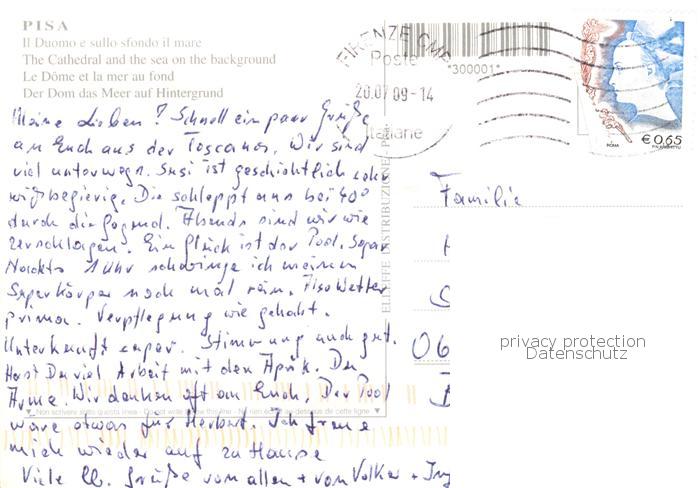 PISA
Il Duomo e sullo sfondo il mare
The Cathedral and the sea on the background
Le Dôme et la mer au fond
Der Dom das Meer auf Hintergrund
FIRENZE CMP
Poste
*300001*
20.07 09-14
Italiane
ROMA
€ 0,65
Meine Lieben! Schnell ein paar Grüße
an Euch aus der Toscana. Wir sind
viel unterwegs. Susi ist geschichtlich sehr
wißbegierig. Die schleppt uns bei 40°
durch die Gegend. Abends sind wir wie
zerschlagen. Ein Glück ist der Pool. Sogar
Nachts 1 Uhr schwinge ich meinen
Superkörper noch mal rein. Also Wetter
prima. Verpflegung wie gehabt.
Unterkunft super. Stimmung auch gut.
Hast Du viel Arbeit mit den Aprik. Du
Arme. Wir denken oft an Euch. Der Pool
wäre etwas für Herbert. Ich freue
mich wieder auf zu Hause
Viele lb. Grüße von allen + von Volker +
Familie
06
privacy protection
Datenschutz
Non scrivere sotto questa linea - Do not write below this line - Ne rien écrire au-dessous de cette ligne